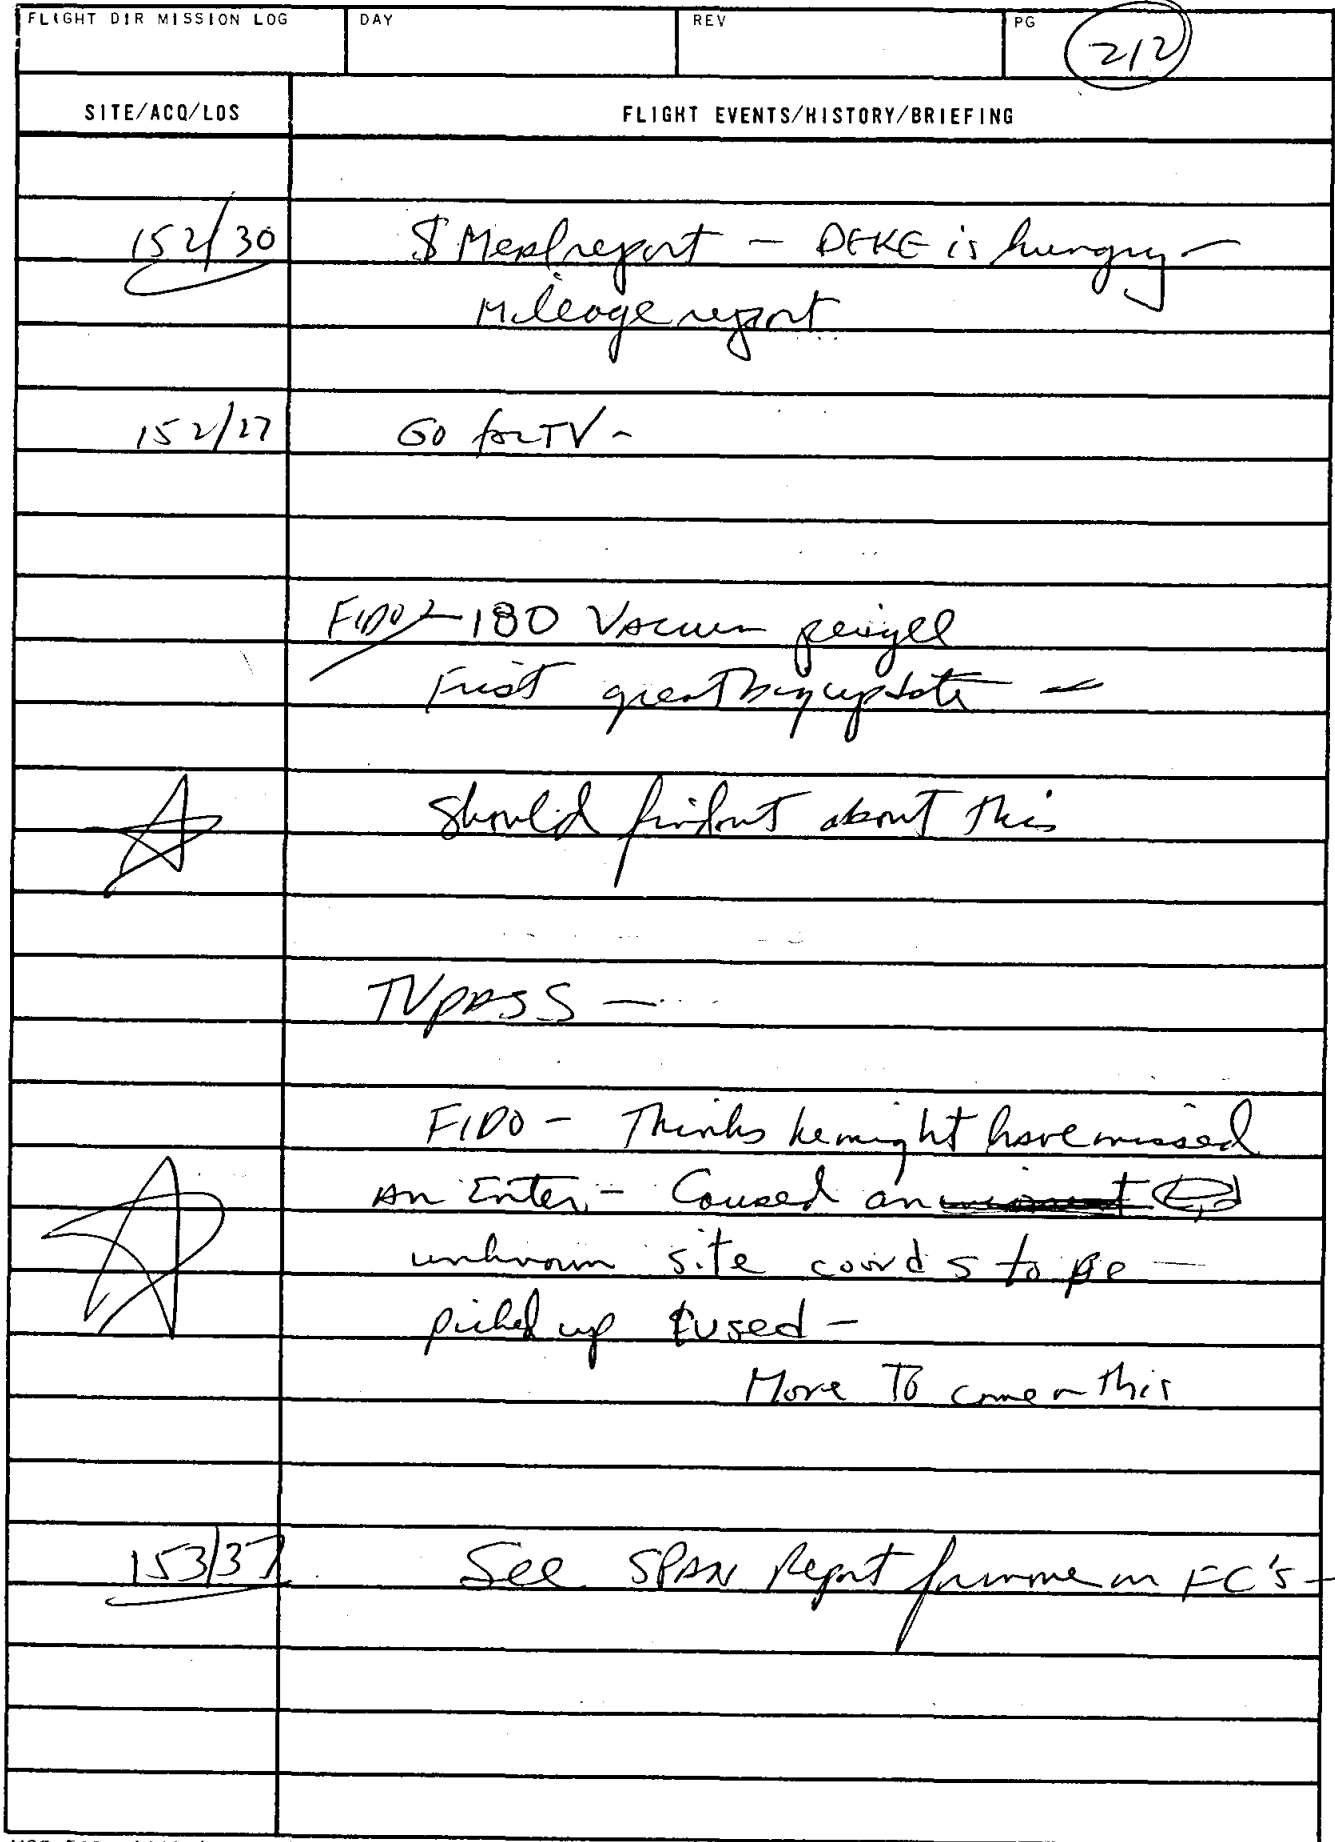 FLIGHT DIR MISSION LOG DAY REV PG 212
SITE/ACQ/LOS FLIGHT EVENTS/HISTORY/BRIEFING
152/30 $ Meal report - DEKE is hungry -
Mileage report
152/27 GO for TV -
FIDO - 180 Vacuum perigee
First great big update -
Should find out about this
TV PASS -
FIDO - Thinks he might have missed
an Enter - Caused an
unknown site coords to be -
picked up & used -
More To come on this
153/37 See SPAN Report from me on FC's -